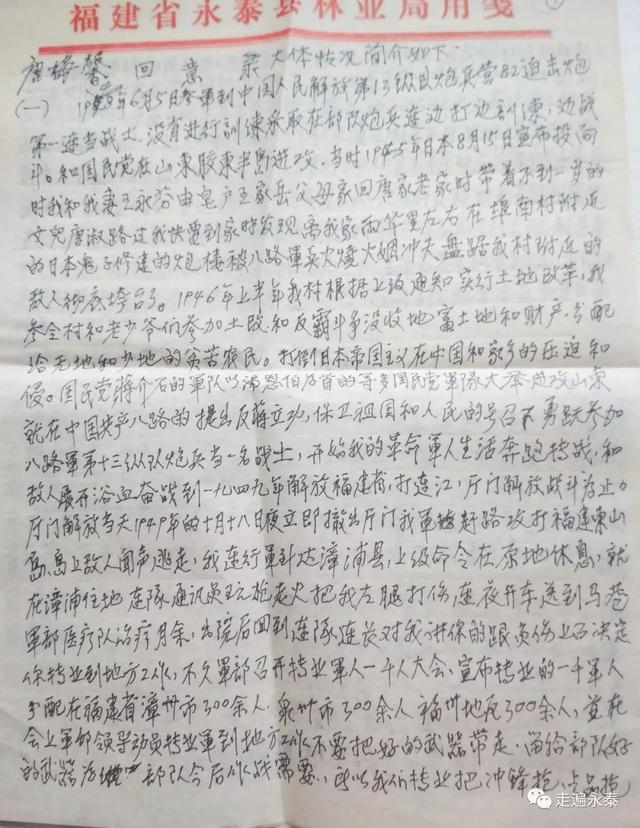 福建省永泰县林业局用笺
唐梅馨 回意录 大体情况简介如下:
(一) 19年6月5日参军到中国人民解放第13纵队炮兵营82迫击炮
第一连当战士,没有进行训练采取在部队炮兵连边打边训练,边战
斗。和国民党在山东胶东半岛进攻,当时1945年日本8月15日宣布投向
时我和我妻王永岩由皂户王家岳父母家回唐家老家时带着不到一岁的
文兒唐淑路过我快要到家时发现离我家两华里左右在填南村附近
的日本鬼子修建的炮楼被八路軍英火燒火烟冲天盘踞我村附近的
敌人彻底垮台了。1946年上半年我村根据上级通知实行土地改革,我
参全村和老少爷们参加土改和反霸斗争没收地富土地和财产,分配
给无地和少地的贫苦农民。打倒日本帝国主义在中国和家乡的压迫和
侵。国民党蔣介石的軍队以汤恩伯为首的等多国民党軍隊大举进攻山東
就在中国共产八路的提出反蔣立功,保卫祖国和人民的号召下勇跃参加
八路軍第十三纵队炮兵当一名战士,开始我的革命軍人生活奔跑转战,和
敌人展开浴血奋战到一九四九年解放福建省,打连江,厅门解放战斗为止。
厅门解放当天1949年的十月十八日夜立即撤出厅门我军赶路攻打福建東山
島,島上敌人闻声逃走,我连行軍到达漳浦县,上级命令在原地休息,就
在漳浦住地 連隊通讯员玩枪走火把我左腿打伤,連夜开车送到马巷
军部医疗队治疗月余,出院后回到連隊連长对我讲你的腿负伤上召决定
你转业到地方工作,不久軍部召开转业軍人一千人大会,宣布转业的一千軍人
分配在福建省漳州市300余人,泉州市300余人 福州地区300余人,並在
会上軍部领导动员转业軍到地方工作不要把好的武器带走,留给部队好
的武器为 部队今后作战需要,所以我们转业把冲锋抢,卡品抢
走遍永泰